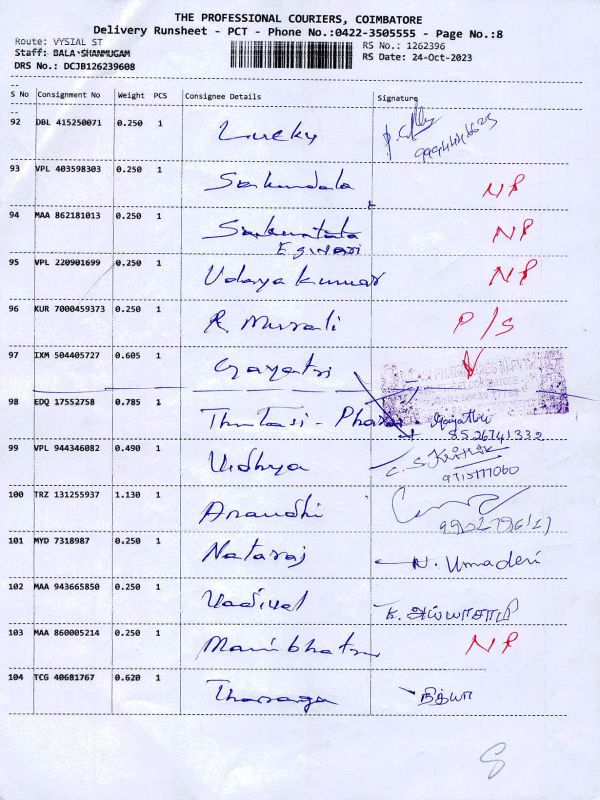 THE PROFESSIONAL COURIERS, COIMBATORE
Delivery Runsheet - PCT - Phone No.:0422-3505555 - Page No.:8
Route: VYSIAL ST
Staff: BALA-SHANMUGAM
DRS No.: DCJB126239608
RS No.: 1262396
RS Date: 24-Oct-2023
S No Consignment No Weight PCS Consignee Details Signature
92 DBL 415250071 0.250 1 Lucky
93 VPL 403598303 0.250 1 Sakundala NP
94 MAA 862181013 0.250 1 NP
95 VPL 220901699 0.250 1 Udaya Kumar NP
96 KUR 7000459373 0.250 1 R Murali P/S
97 IXM 504405727 0.605 1 Gayatri
98 EDQ 17552758 0.785 1 Thulasi - Phar
8526741332
99 VPL 944346082 0.490 1 Vidhya
9715177060
100 TRZ 131255937 1.130 1 Anandhi
101 MYD 7318987 0.250 1 Nataraj N. Umadevi
102 MAA 943665850 0.250 1 Vadivel K. அய்யாசாமி
103 MAA 860005214 0.250 1 NP
104 TCG 40681767 0.620 1 Tharaga நித்யா
8